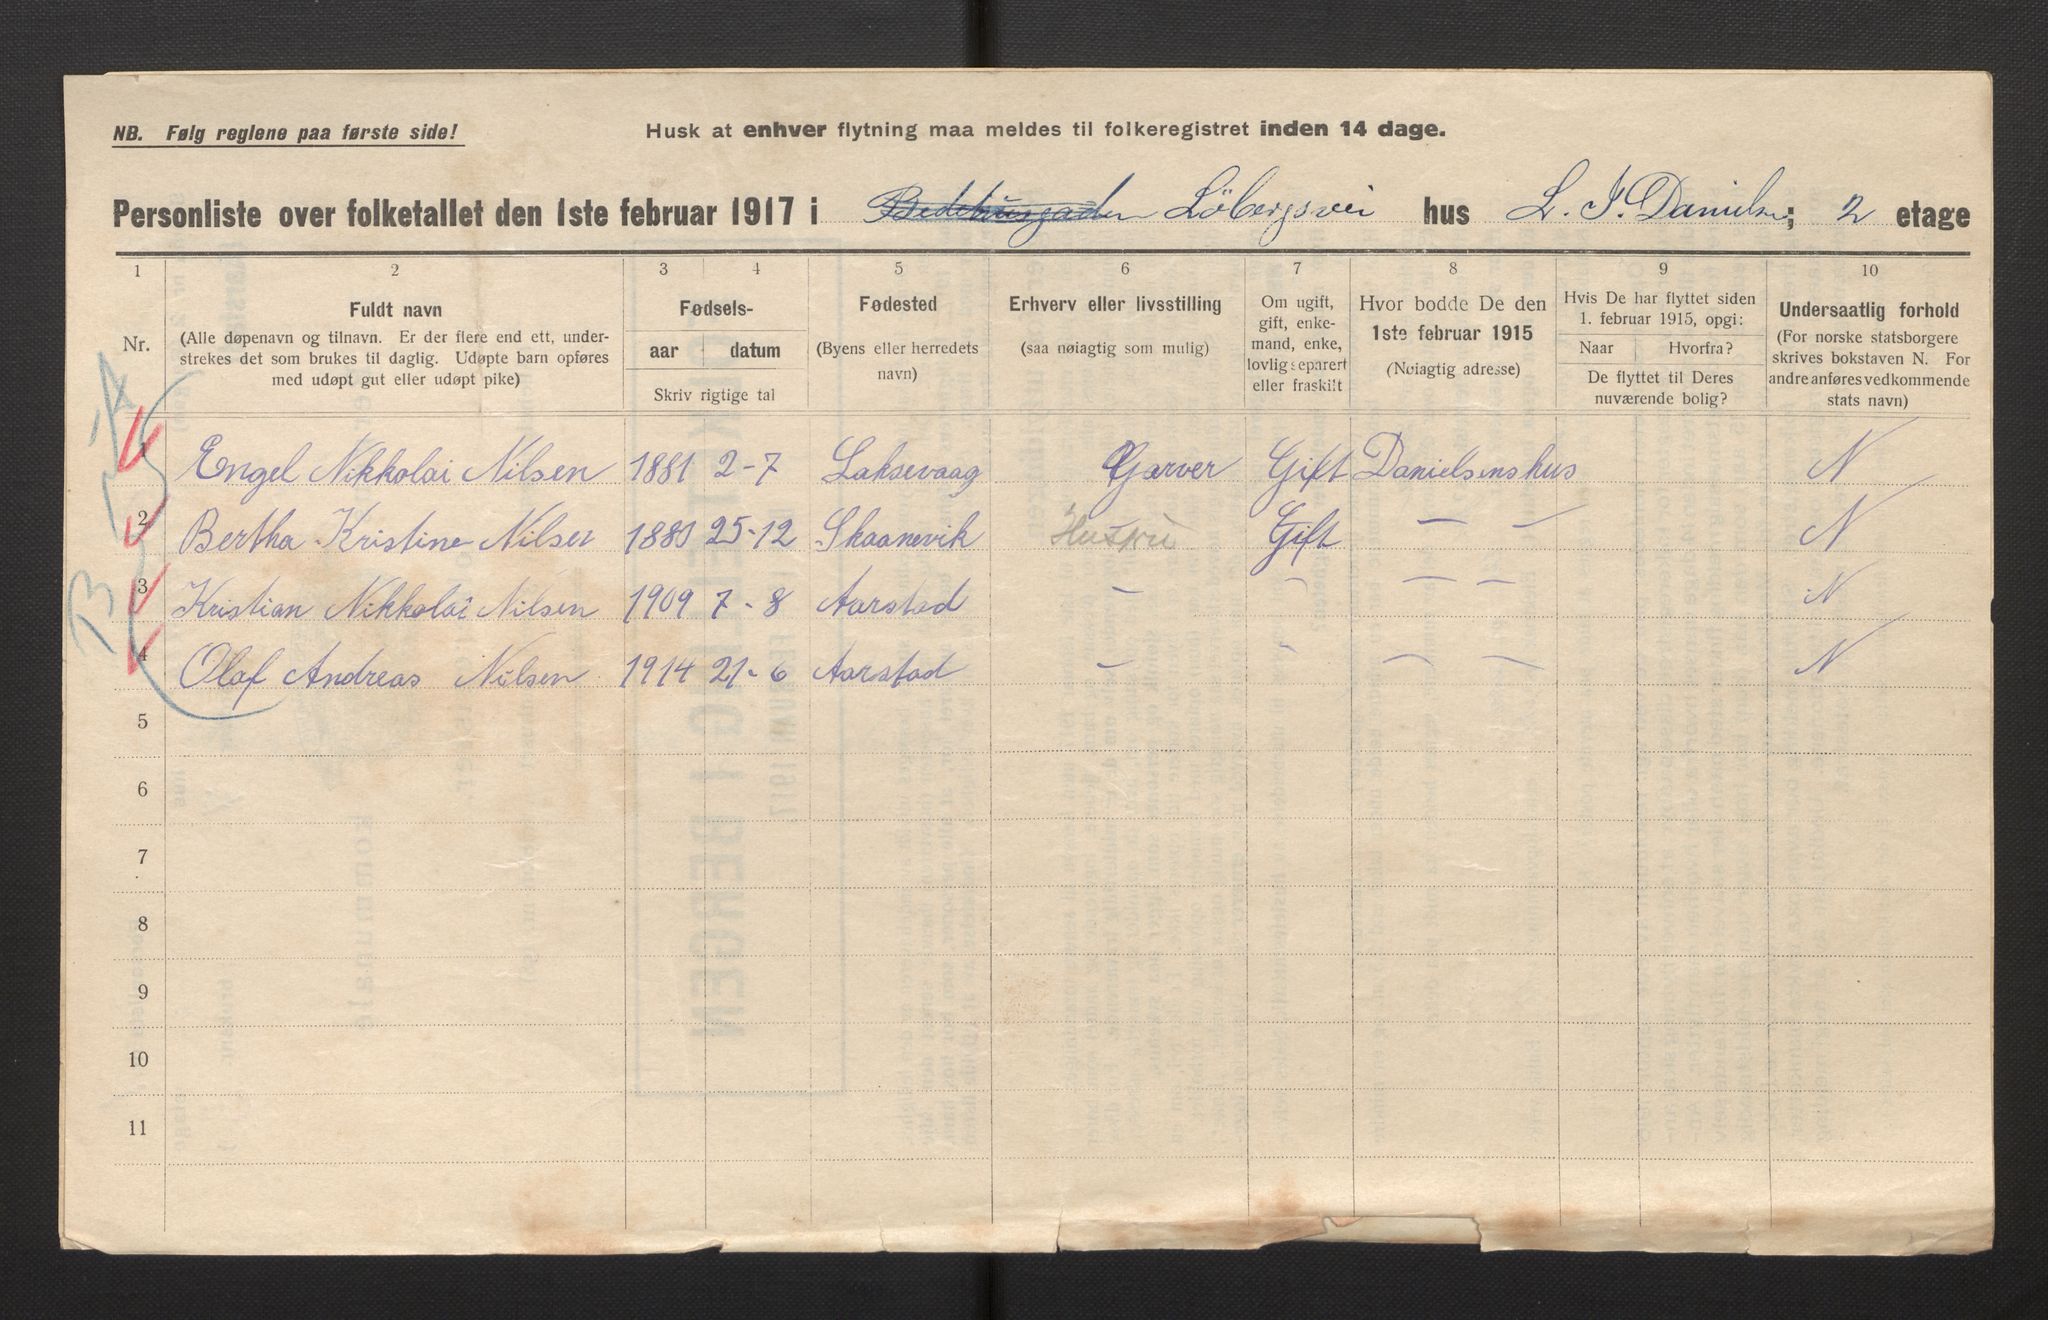 NB. Følg reglene paa første side!
Husk at enhver flytning maa meldes til folkeregistret inden 14 dage.
Personliste over folketallet den 1ste februar 1917 i Bedehusgaden Löbergsvei hus L. J. Danielsen; 2 etage
1 2 3 4 5 6 7 8 9 10
Nr.
Fuldt navn
(Alle døpenavn og tilnavn. Er der flere end ett, under-
strekes det som brukes til daglig. Udøpte barn opføres
med udøpt gut eller udøpt pike)
Fødsels-
aar datum
Skriv rigtige tal
Fødested
(Byens eller herredets
navn)
Erhverv eller livsstilling
(saa nøiagtig som mulig)
Om ugift,
gift, enke-
mand, enke,
lovlig separert
eller fraskilt
Hvor bodde De den
1ste februar 1915
(Nøiagtig adresse)
Hvis De har flyttet siden
1. februar 1915, opgi:
Naar Hvorfra?
De flyttet til Deres
nuværende bolig?
Undersaatlig forhold
(For norske statsborgere
skrives bokstaven N. For
andre anføres vedkommende
stats navn)
A
1 Engel Nikkolai Nilsen 1881 2-7 Laksevaag Garver Gift Danielsens hus N
2 Bertha Kristine Nilsen 25-12 Skaanevik Hustru Gift — — N
B
3 Kristian Nikkolai Nilsen 1909 7-8 Aarstad - - — — N
4 Olaf Andreas Nilsen 1914 21-6 Aarstad - - — — N
5
6
7
8
9
10
11